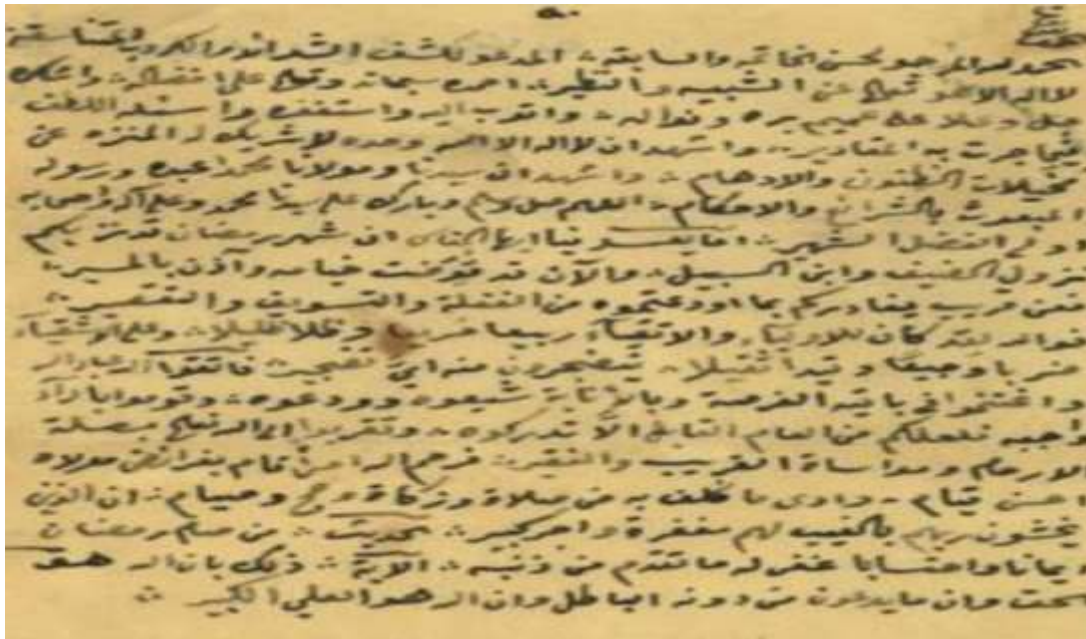 ٥٠
الحمد لله المرجو لحسن الخاتمه والسابقه المدعو لكشف الشدائد والكروب
لا اله الا هو تعالى عن الشبيه والنظير احمده سبحانه وتعالى على
جل وعلا على عميم بره ونواله واتوب اليه واستغفره واسئله اللطف
فيما جرت به المقادير واشهد ان لا اله الا الله وحده لا شريك له المنزه عن
تخيلات الظنون والاوهام واشهد ان سيدنا ومولانا محمدا عبده ورسوله
المبعوث بالشرائع والاحكام اللهم صل وسلم وبارك على سيدنا محمد وعلى اله وصحبه
اولي الفضل الشهير اما بعد فيا ايها الناس ان شهر رمضان قد نزل بكم
نزول الضيف وابن السبيل والآن قد قوضت خيامه وآذن بالمسير
فعن قريب يغادركم بما اودعتموه من الغفلة والتسويف والتقصير
فوالله لقد كان للاولياء والاتقياء ربيعا وظلا ظليلا وعلى الاشقياء
ضربا وجيعا وقيدا ثقيلا يتضجرون منه اي تضجير فاتقوا الله عباد الله
واغتنموا في باقيه الفرصة شيعوه وودعوه وقوموا باداء
واجبه فلعلكم من العام القابل ألا تدركوه وتقربوا الى الله تعالى بصلة
الارحام ومواساة الغريب والفقير فرحم الله امرءا قام بفرائض مولاه
احسن قيام وادى ما كلف به من صلاة وزكاة وحج وصيام ان الذين
يخشون ربهم بالغيب لهم مغفرة واجر كبير حديث من صام رمضان
ايمانا واحتسابا غفر له ما تقدم من ذنبه الاية ذلك بان الله هو
الحق وان ما يدعون من دونه الباطل وان الله هو العلي الكبير